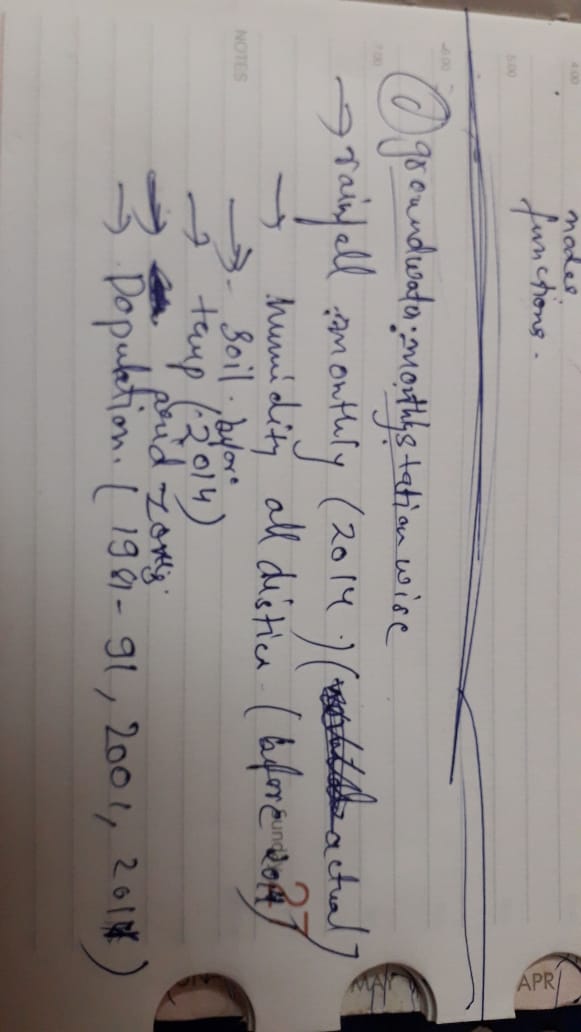 4.00
nodes.
functions.
5.00
6.00
d) groundwater: monthly station wise
7.00
→ rainfall : monthly (2014.) ( actual)
27
→ humidity all distics (before 2014)
Sunday
NOTES
→ Soil. before
→ temp (2014)
→ arid
→ Population. ( 1981-91, 2001, 201 )
APR
MAY